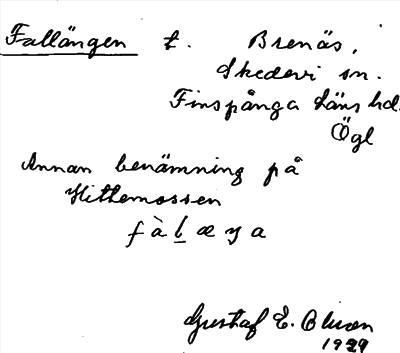 Fallängen t. Brenäs,
Skedevi sn.
Finspånga läns hd.
Ögl
Annan benämning på
Hittemossen
fàlæŋa
Gustaf E. Olsson
1929